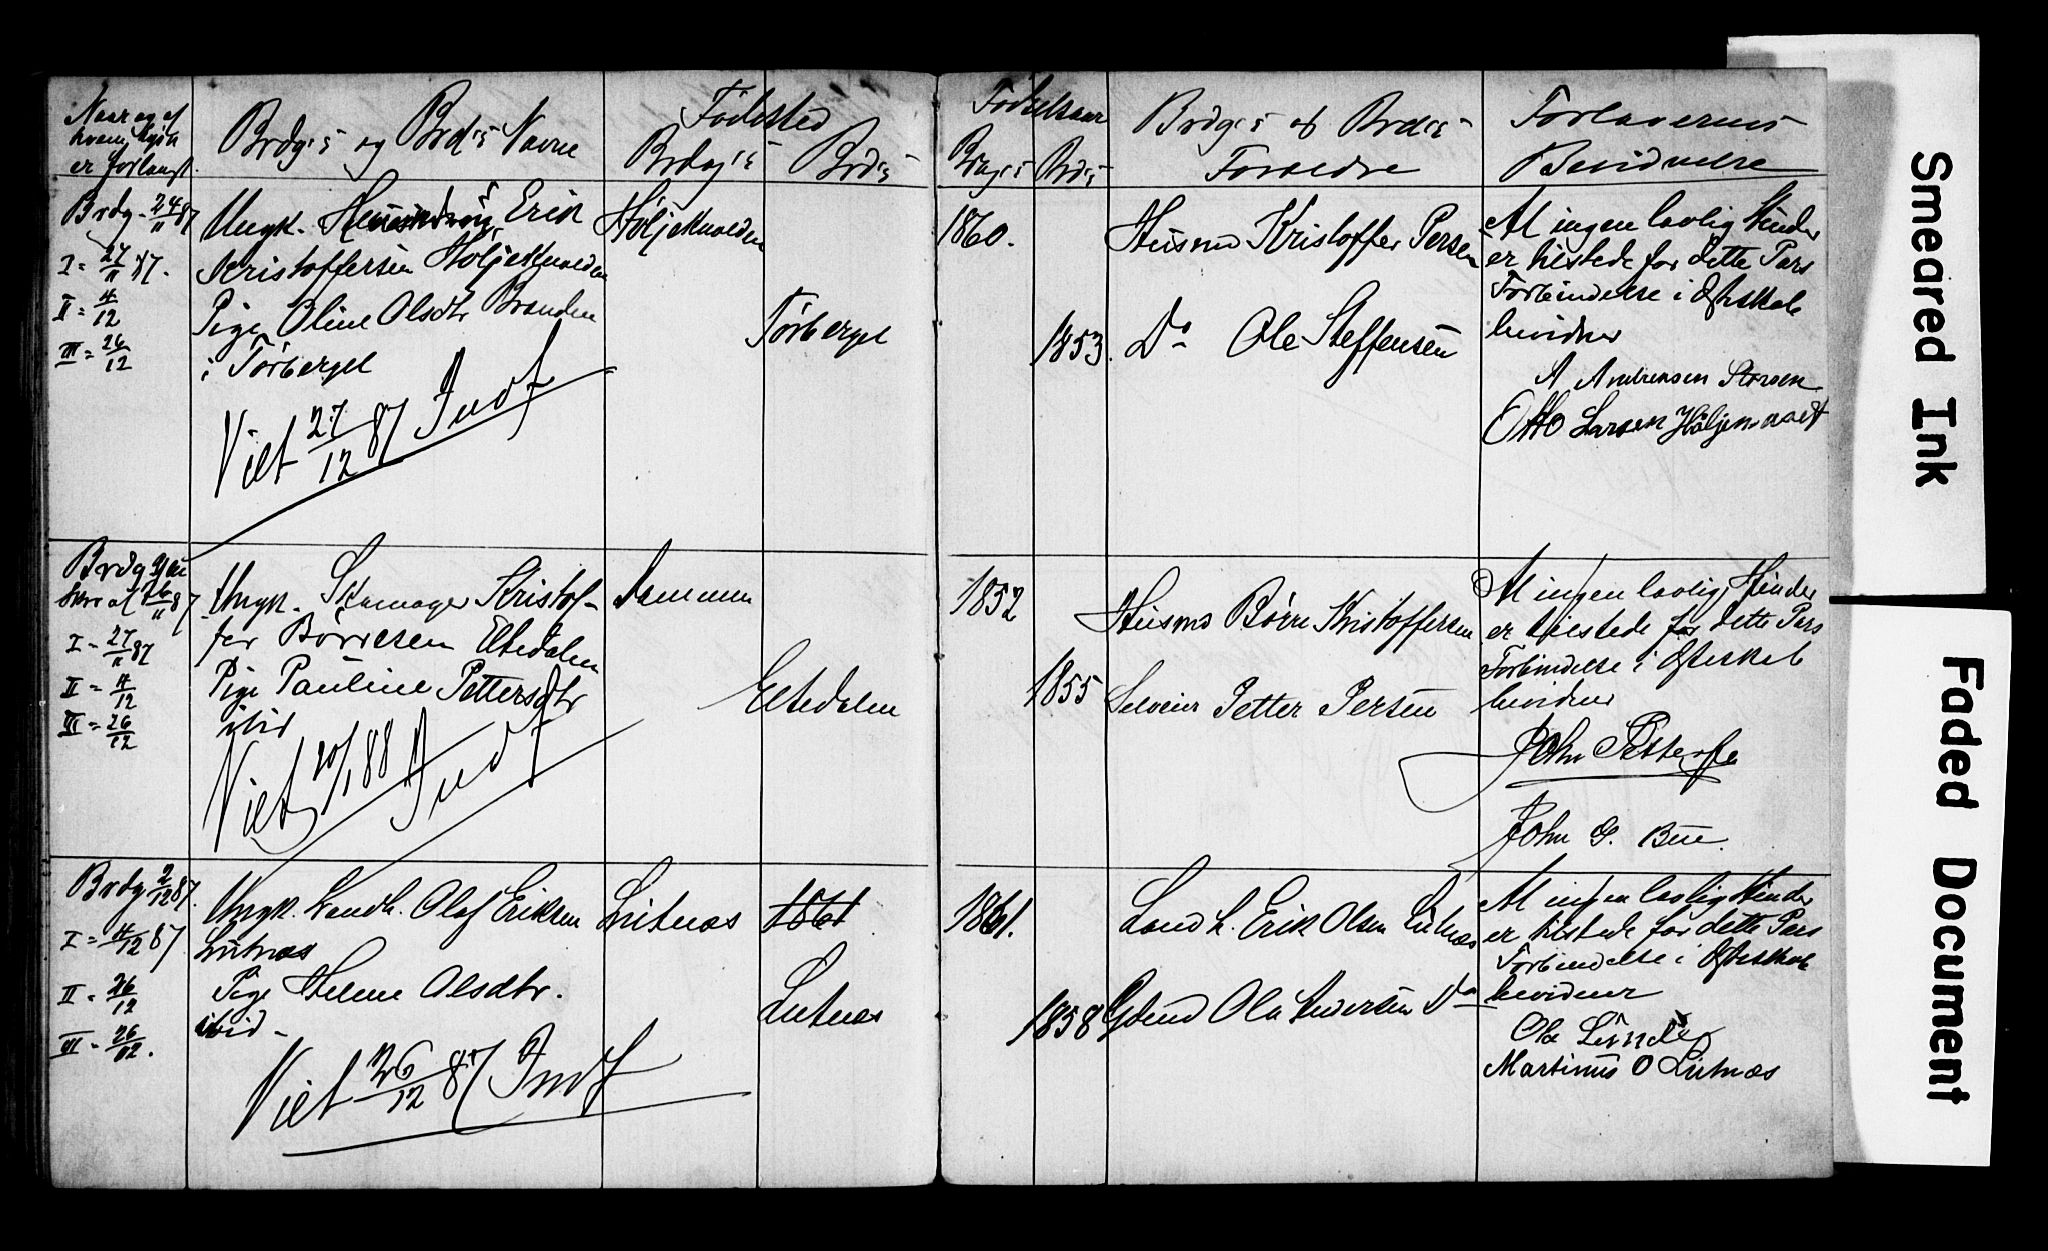 Naar og af
hvem Lysn.
er forlangt.
Brdg's og Brd's Navne
Fødested
Brdg's
Brd's
Fødselsaar
Brdg's
Brd's
Brdg's og Brd's
Forældre
Forloverens
Bevidnelse
Brdg. 24/11 87
I = 27/11 87.
II = 4/12
III = 26/12
Ungk. Erik
Kristoffersen Höljeknolden
Pige Oline Olsdtr Branden
i Törberget
Viet 27/12 87 Indf
Höljeknolden
Törberget
1860.
1853.
Husmd Kristoffer Persen
Do Ole Steffensen
At ingen lovlig Hinder
er tilstede for dette Pars
Forbindelse i Ægteskab
bevidner
A Andreasen Storsen
Otto Larsen
Brdg
26/11 87
I = 27/11 87
II = 4/12
III = 26/12
Ungk. Skomager Kristof-
fer Börresen Eltedalen
Pige Pauline Pettersdtr
ibid
Viet 20/1 88 Indf
Sammen
Eltedalen
1852
1855
Husmd Börre Kristoffersen
Selveier Petter Persen
At ingen lovlig Hinder
er tilstede for dette Pars
Forbindelse i Ægteskab
bevidner
John
John G. Bue.
Brdg 2/12 87.
I = 4/12 87
II = 26/12
III = 26/12.
Ungk. Landh. Olaf Eriksen
Lutnæs
Pige Helene Olsdtr.
ibid
Viet 26/12 87 Indf
Lutnæs
1861
Lutnæs
1861.
1858
Landh. Erik Olsen Lutnæs
Gbmd Ole Andersen Do
At ingen lovlig Hinder
er tilstede for dette Pars
Forbindelse i Ægteskab
bevidner
Ole Linde
Martinus O Lutnæs
Smeared Ink
Faded Document